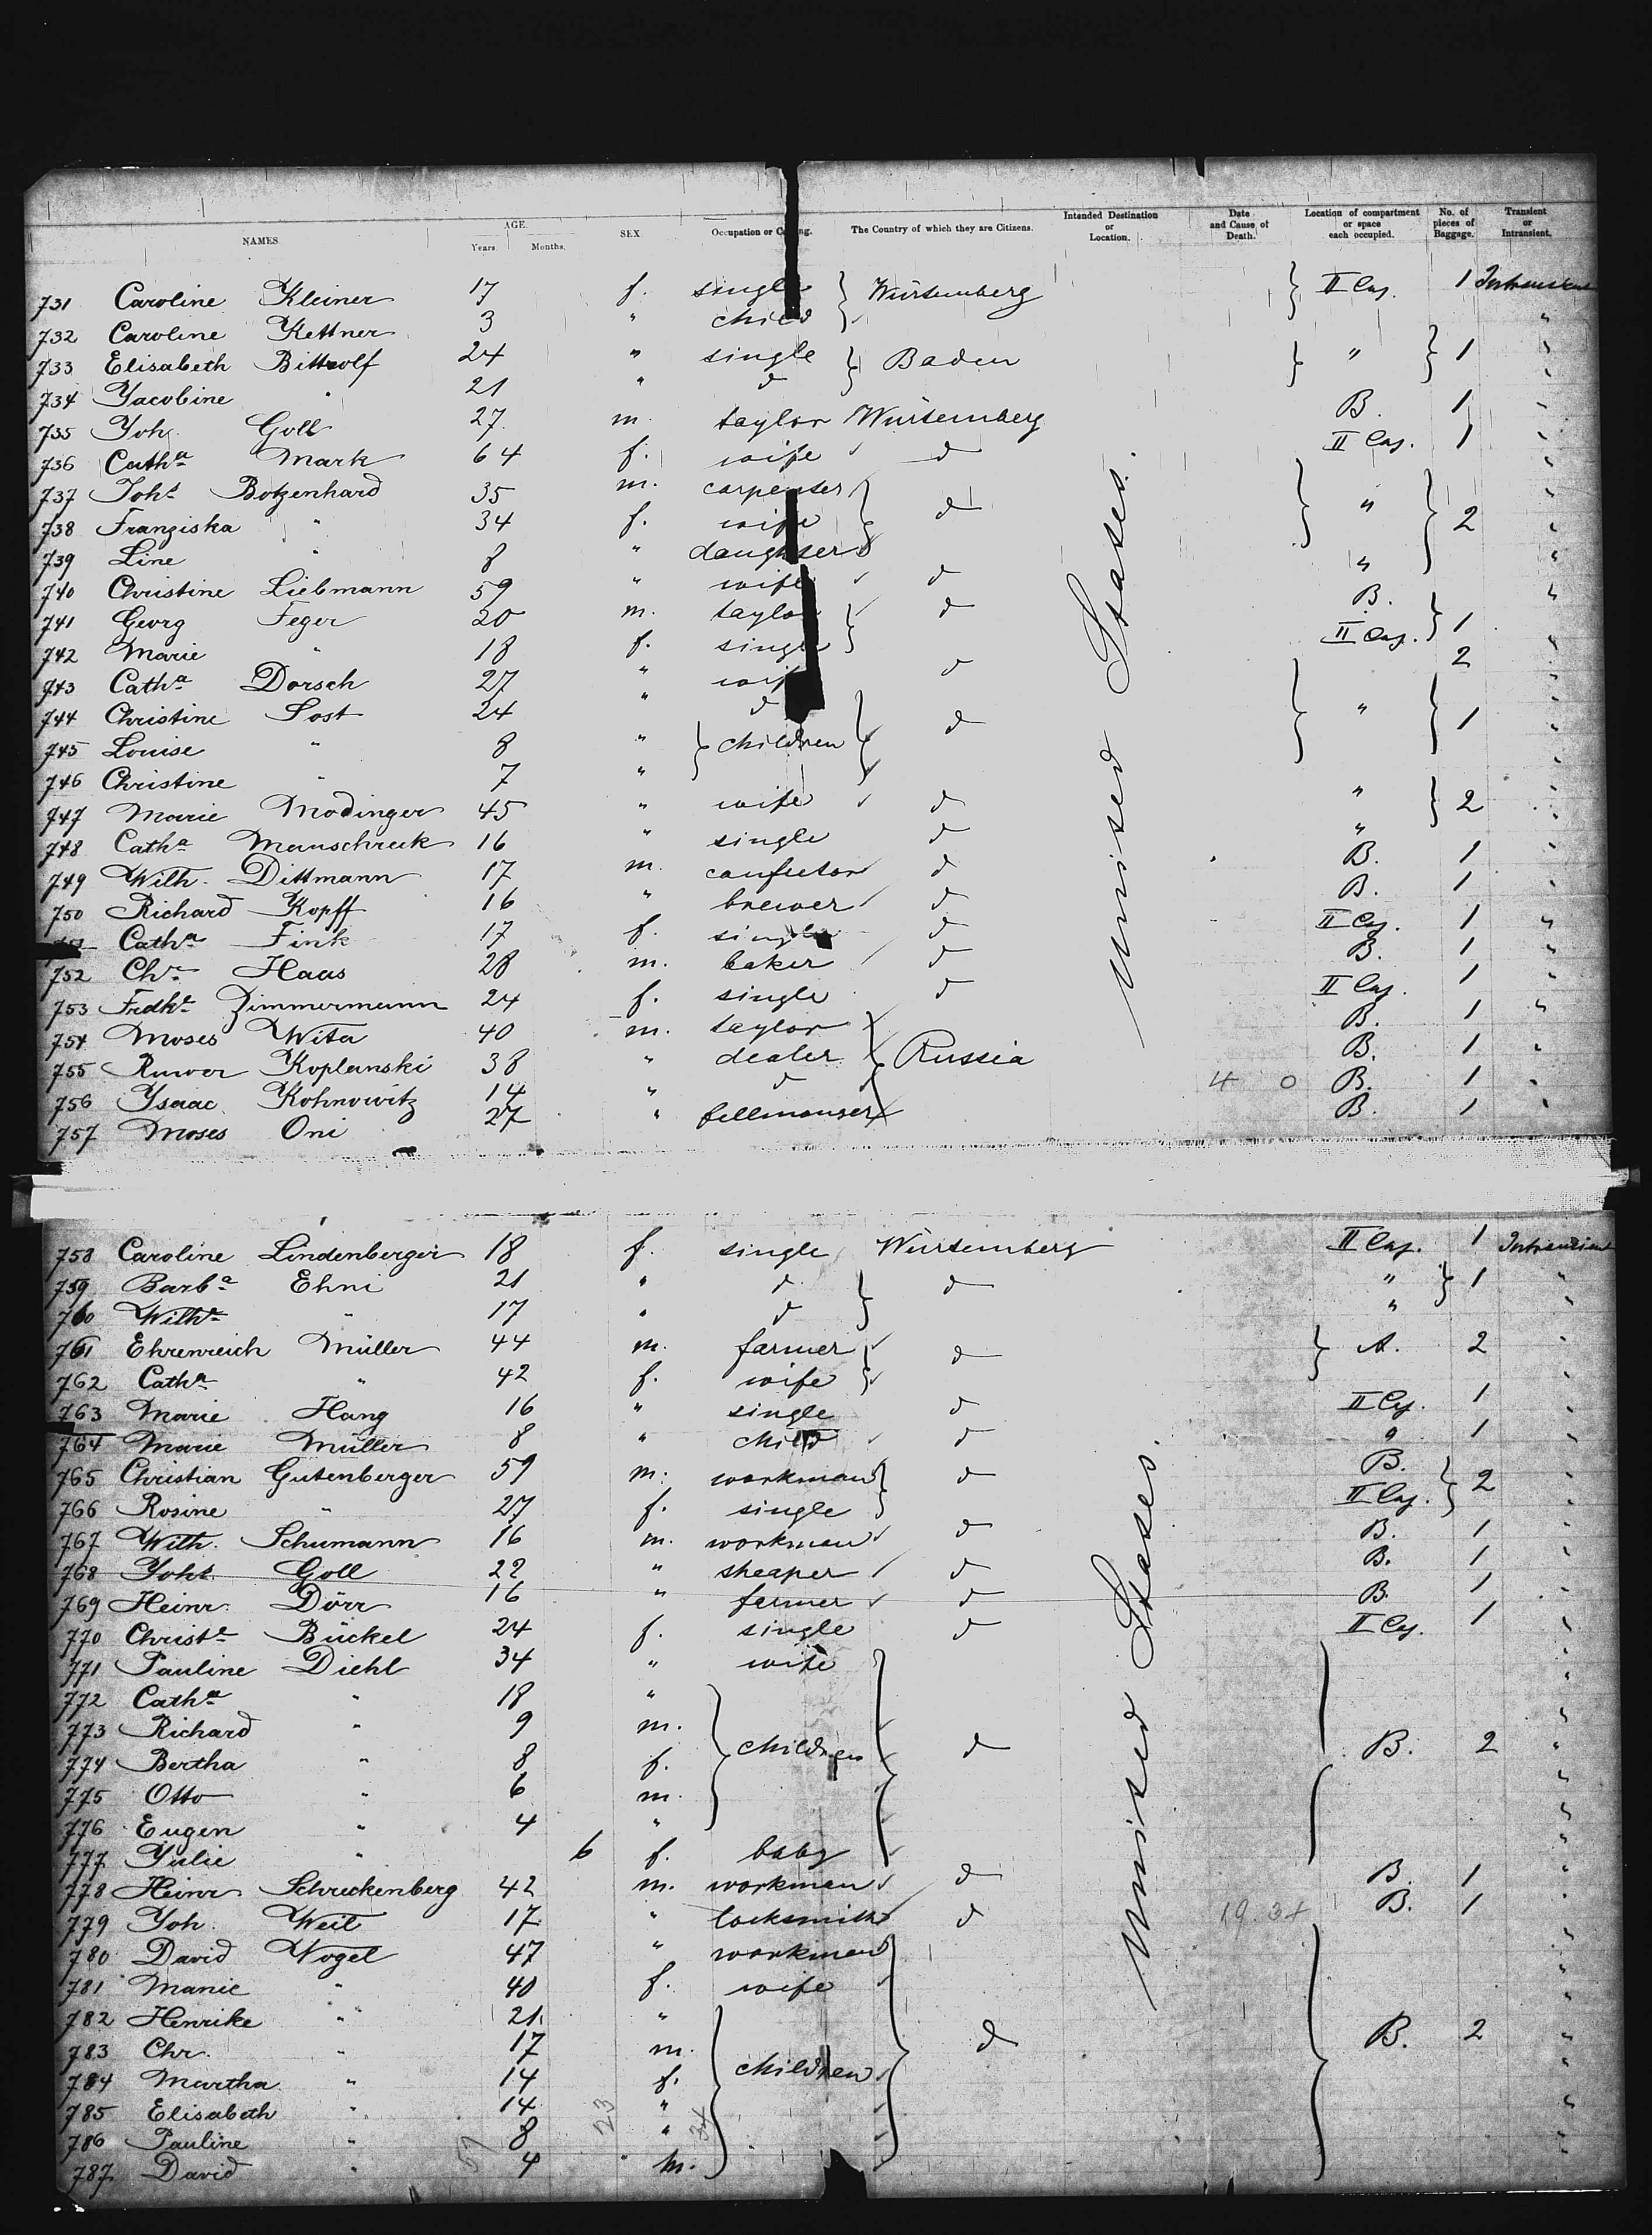 NAMES. AGE. Years. Months. SEX Occupation or Calling. The Country of which they are Citizens. Intended Destination or Location. Date and Cause of Death. Location of compartment or space each occupied. No. of pieces of Baggage. Transient or Intransient.
731 Caroline Kleiner 17 f. single } Würtemberg } II Caj. 1 Intransient
732 Caroline Kettner 3 " child "
733 Elisabeth Bittrolf 24 " single } Baden } " } 1 "
734 Jacobine " 21 " d "
735 Joh. Goll 27 m. taylor Würtemberg B. 1 "
736 Cath.a Mark 64 f. wife d II Caj. 1 "
737 Joh.s Botzenhard 35 m. carpenter "
738 Franziska " 34 f. wife } d } " } 2 "
739 Line " 8 " daughter "
740 Christine Liebmann 59 " wife d " "
741 Georg Feger 20 m. taylor } d B. } 1
742 Marie " 18 f. single II Caj. "
743 Cath.a Dorsch 27 " wife d 2 "
744 Christine Sost 24 " d } d } " } 1 "
745 Louise " 8 " } children "
746 Christine " 7 " "
747 Marie Modinger 45 " wife d " } 2 "
748 Cath.a Manschreck 16 " single d " "
749 Wilh. Dittmann 17 m. confector d B. 1 "
750 Richard Kopff 16 " brewer d B. 1 "
Cath.a Fink 17 f. single d II Caj. 1 "
752 Chr. Haas 28 m. baker d B. 1 "
753 Fredke Zimmermann 24 f. single d II Caj. 1 "
754 Moses Wita 40 m. taylor } Russia B. 1 "
755 Ruwer Koplanski 38 " dealer B. 1 "
756 Ysaac Kohnowitz 14 " d 4 0 B. 1 "
757 Moses Oni 27 " fellmonger B. 1 "
United States.
758 Caroline Lindenberger 18 f. single Würtemberg II Caj. 1 Intransient
759 Barb.a Ehni 21 " d } d " } 1 "
760 Wilh.e " 17 " d " "
761 Ehrenreich Müller 44 m. farmer } d } A. 2 "
762 Cath.a " 42 f. wife "
763 Marie Hang 16 " single d II Caj. 1 "
764 Marie Müller 8 " child d " 1 "
765 Christian Gutenberger 59 m. workman } d B. } 2 "
766 Rosine " 27 f. single II Caj. "
767 Wilh. Schumann 16 m. workman d B. 1 "
768 Joh.s Goll 22 " sheaper d B. 1 "
769 Heinr. Dörr 16 " farmer d B. 1 "
770 Christ.e Bückel 24 f. single d II Caj. 1 "
771 Pauline Diehl 34 " wife "
772 Cath.a " 18 " "
773 Richard " 9 m. "
774 Bertha " 8 f. } children } d B. 2 "
775 Otto " 6 m. "
776 Eugen " 4 " "
777 Julie " 6 f. baby "
778 Heinr. Schreckenberg 42 m. workman d B. 1 "
779 Joh. Weil 17 " locksmith d B. 1 "
780 David Vogel 47 " workman "
781 Marie " 40 f. wife "
782 Henrike " 21 " "
783 Chr. " 17 m. d B. 2 "
784 Martha " 14 f. } children "
785 Elisabeth " 14 " "
786 Pauline " 8 " "
787 David " 4 m. "
United States.